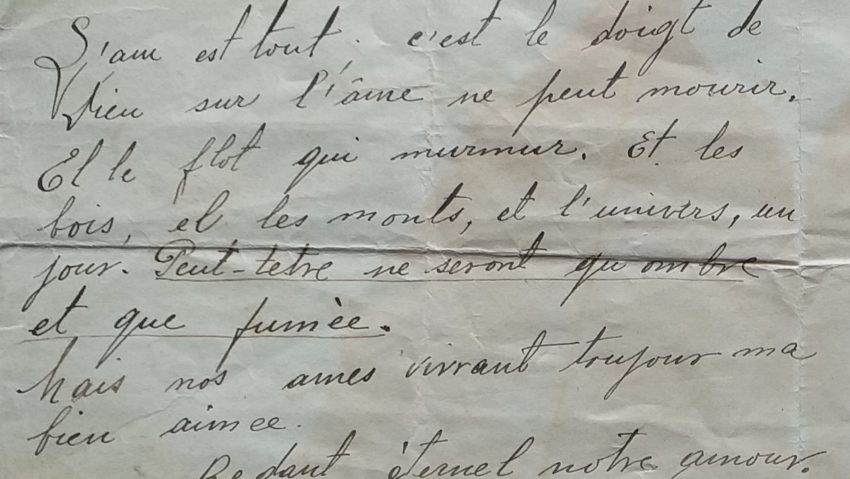 L'am est tout, c'est le doigt de
Dieu sur l'âme ne peut mourir.
El le flot qui murmur. Et les
bois, el les monts, et l'univers, un
jour. Peut-tetre ne seront qu'ombre
et que fumèe.
Mais nos ames vivrant toujour ma
bien aimee.
Redant èternel notre amour.